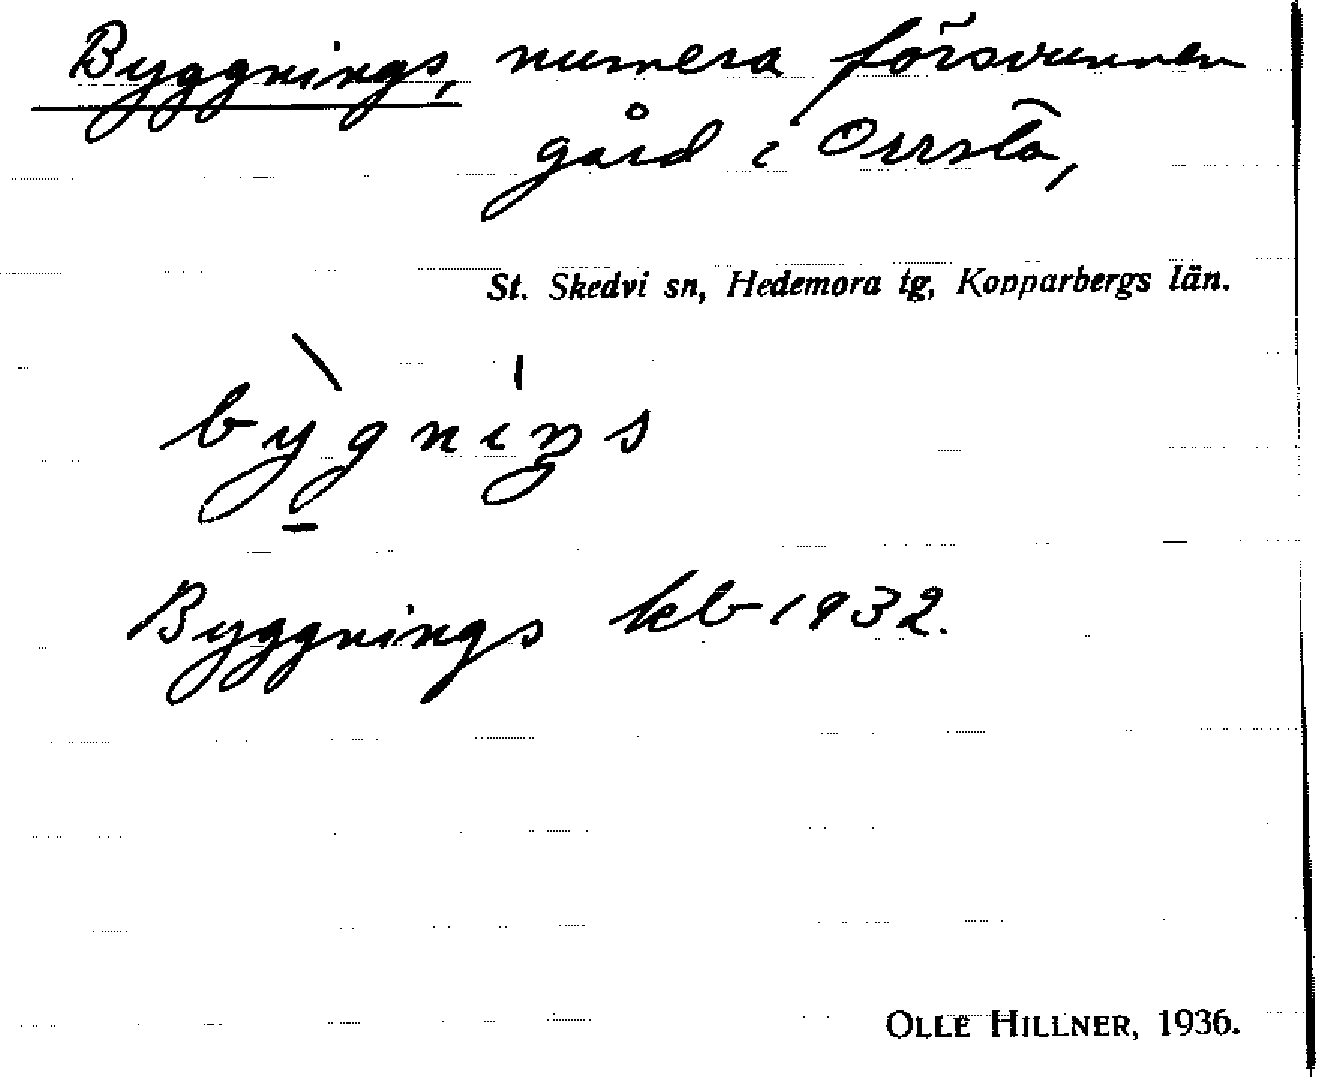 Byggnings, numera försvunnen
gård i Orrsta,
St. Skedvi sn, Hedemora tg, Kopparbergs län.
bỳgniŋs
Byggnings kb 1932.
OLLE HILLNER, 1936.